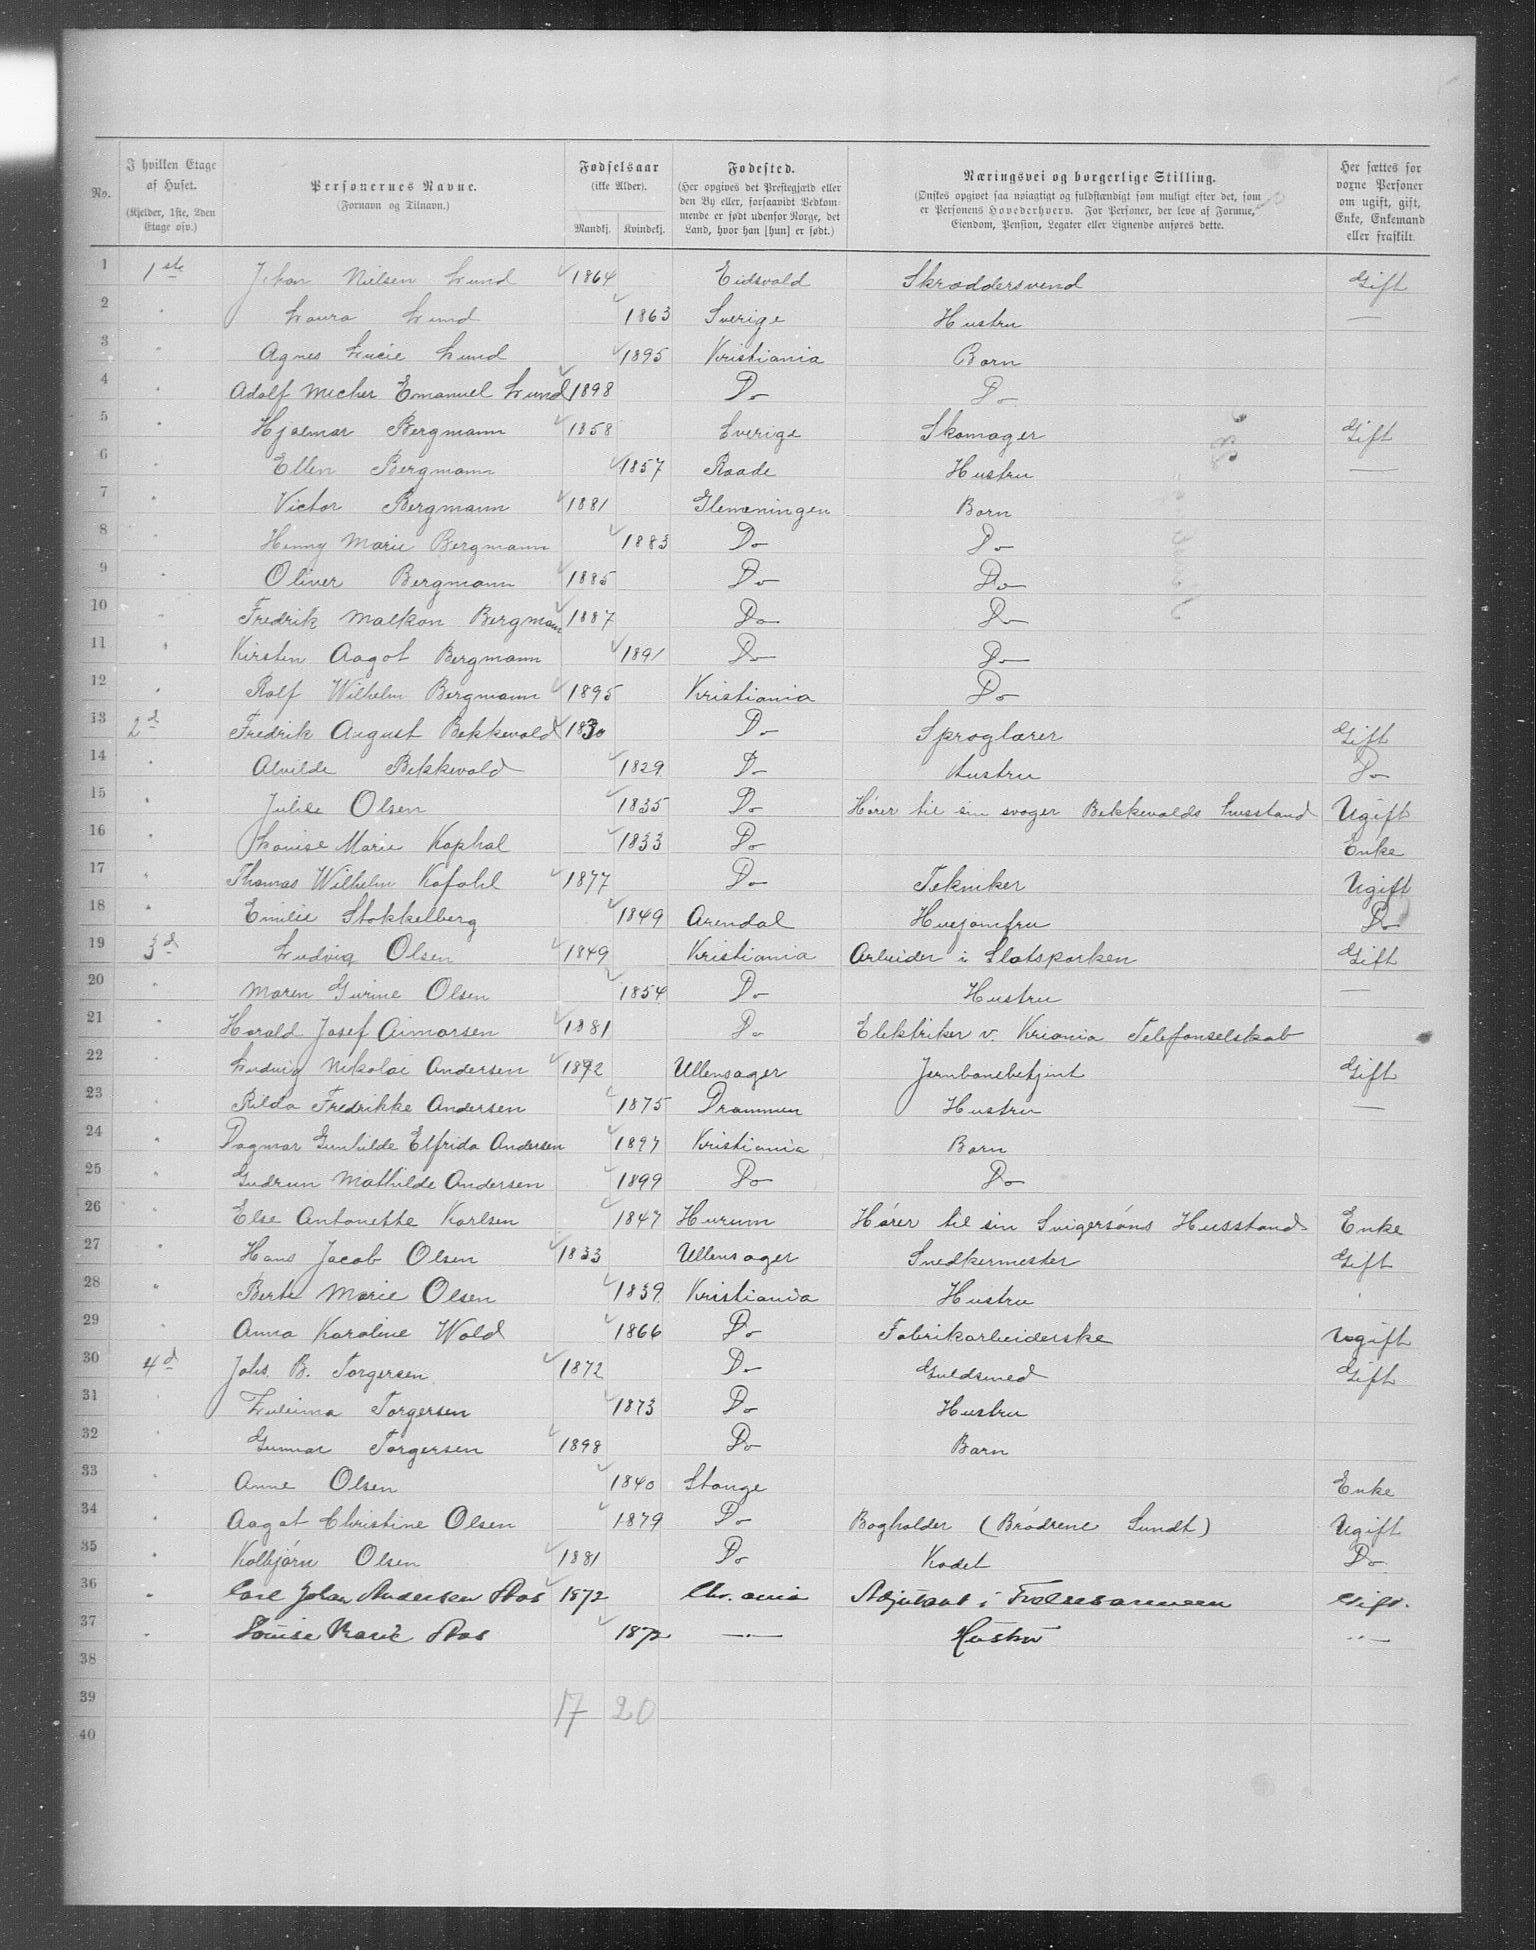 No.
I hvilken Etage af Huset.
(Kjelder, 1ste, 2den Etage osv.)
Personernes Navne.
(Fornavn og Tilnavn.)
Fødselsaar
(ikke Alder).
Mandkj. Kvindekj.
Fødested.
(Her opgives det Prestegjæld eller den By eller, forsaavidt Vedkommende er født udenfor Norge, det Land, hvor han [hun] er født.)
Næringsvei og borgerlige Stilling.
(Ønskes opgivet saa nøiagtigt og fuldstændigt som muligt efter det, som er Personens Hovederhverv. For Personer, der leve af Formue, Eiendom, Pension, Legater eller Lignende anføres dette.
Her sættes for voxne Personer om ugift, gift, Enke, Enkemand eller fraskilt.
1 1ste Johan Nielsen Lund 1864 Eidsvold Skræddersvend Gift
2 " Laura Lund 1863 Sverige Hustru —
3 " Agnes Lucie Lund 1895 Kristiania Barn
4 " Adolf Emanuel Lund 1898 Do Do
5 " Hjalmar Bergmann 1858 Sverige Skomager Gift
6 " Ellen Bergmann 1857 Raade Hustru —
7 " Victor Bergmann 1881 Glemmingen Barn
8 " Henny Marie Bergmann 1883 Do Do
9 " Oliver Bergmann 1885 Do Do
10 " Fredrik Malkon Bergmann 1887 Do Do
11 " Kirsten Aagot Bergmann 1891 Do Do
12 " Rolf Wilhelm Bergmann 1895 Kristiania Do
13 2d Fredrik August Bekkevold 1830 Do Sproglærer Gift
14 " Alvilde Bekkevold 1829 Do Hustru Do
15 " Julie Olsen 1835 Do Hører til sin svoger Bekkevolds husstand Ugift
16 " Louise Marie Kaphal 1833 Do Enke
17 " Thomas Wilhelm Kafahl 1877 Do Tekniker Ugift
18 " Emilie Stokkelberg 1849 Arendal Husjomfru Do
19 3d Ludvig Olsen 1849 Kristiania Arbeider i Slotsparken Gift
20 " Maren Gurine Olsen 1854 Do Hustru —
21 " Harald Josef Aimarsen 1881 Do Elektriker v. Kriania Telefonselskab
22 " Ludvig Nikolai Andersen 1872 Ullensager Jernbanebetjent Gift
23 " Rilda Fredrikke Andersen 1875 Drammen Hustru —
24 " Dagmar Gunhilde Elfrida Andersen 1897 Kristiania Barn
25 " Gudrun Mathilde Andersen 1899 Do Do
26 " Else Antonette Karlsen 1847 Hurum Hører til sin Svigersøns Husstand Enke
27 " Hans Jacob Olsen 1833 Ullensager Snedkermester Gift
28 " Berte Marie Olsen 1839 Kristiania Hustru "
29 " Anna Karoline Wold 1866 Do Fabrikarbeiderske Ugift
30 4d Johs. B. Torgersen 1872 Do Guldsmed Gift
31 " Torgersen 1873 Do Hustru
32 " Gunnar Torgersen 1898 Do Barn
33 " Anne Olsen 1840 Stange Enke
34 " Aagot Christine Olsen 1879 Do Bogholder (Brødrene Sundt) Ugift
35 " Kolbjørn Olsen 1881 Do Kadet Do
36 " Carl Johan Andersen Aas 1872 Chr.ania Adjutant i Frelsesarmeen Gift.
37 " Louise Marie Aas 1872 —"— Hustru —"—
38
39 17 20
40